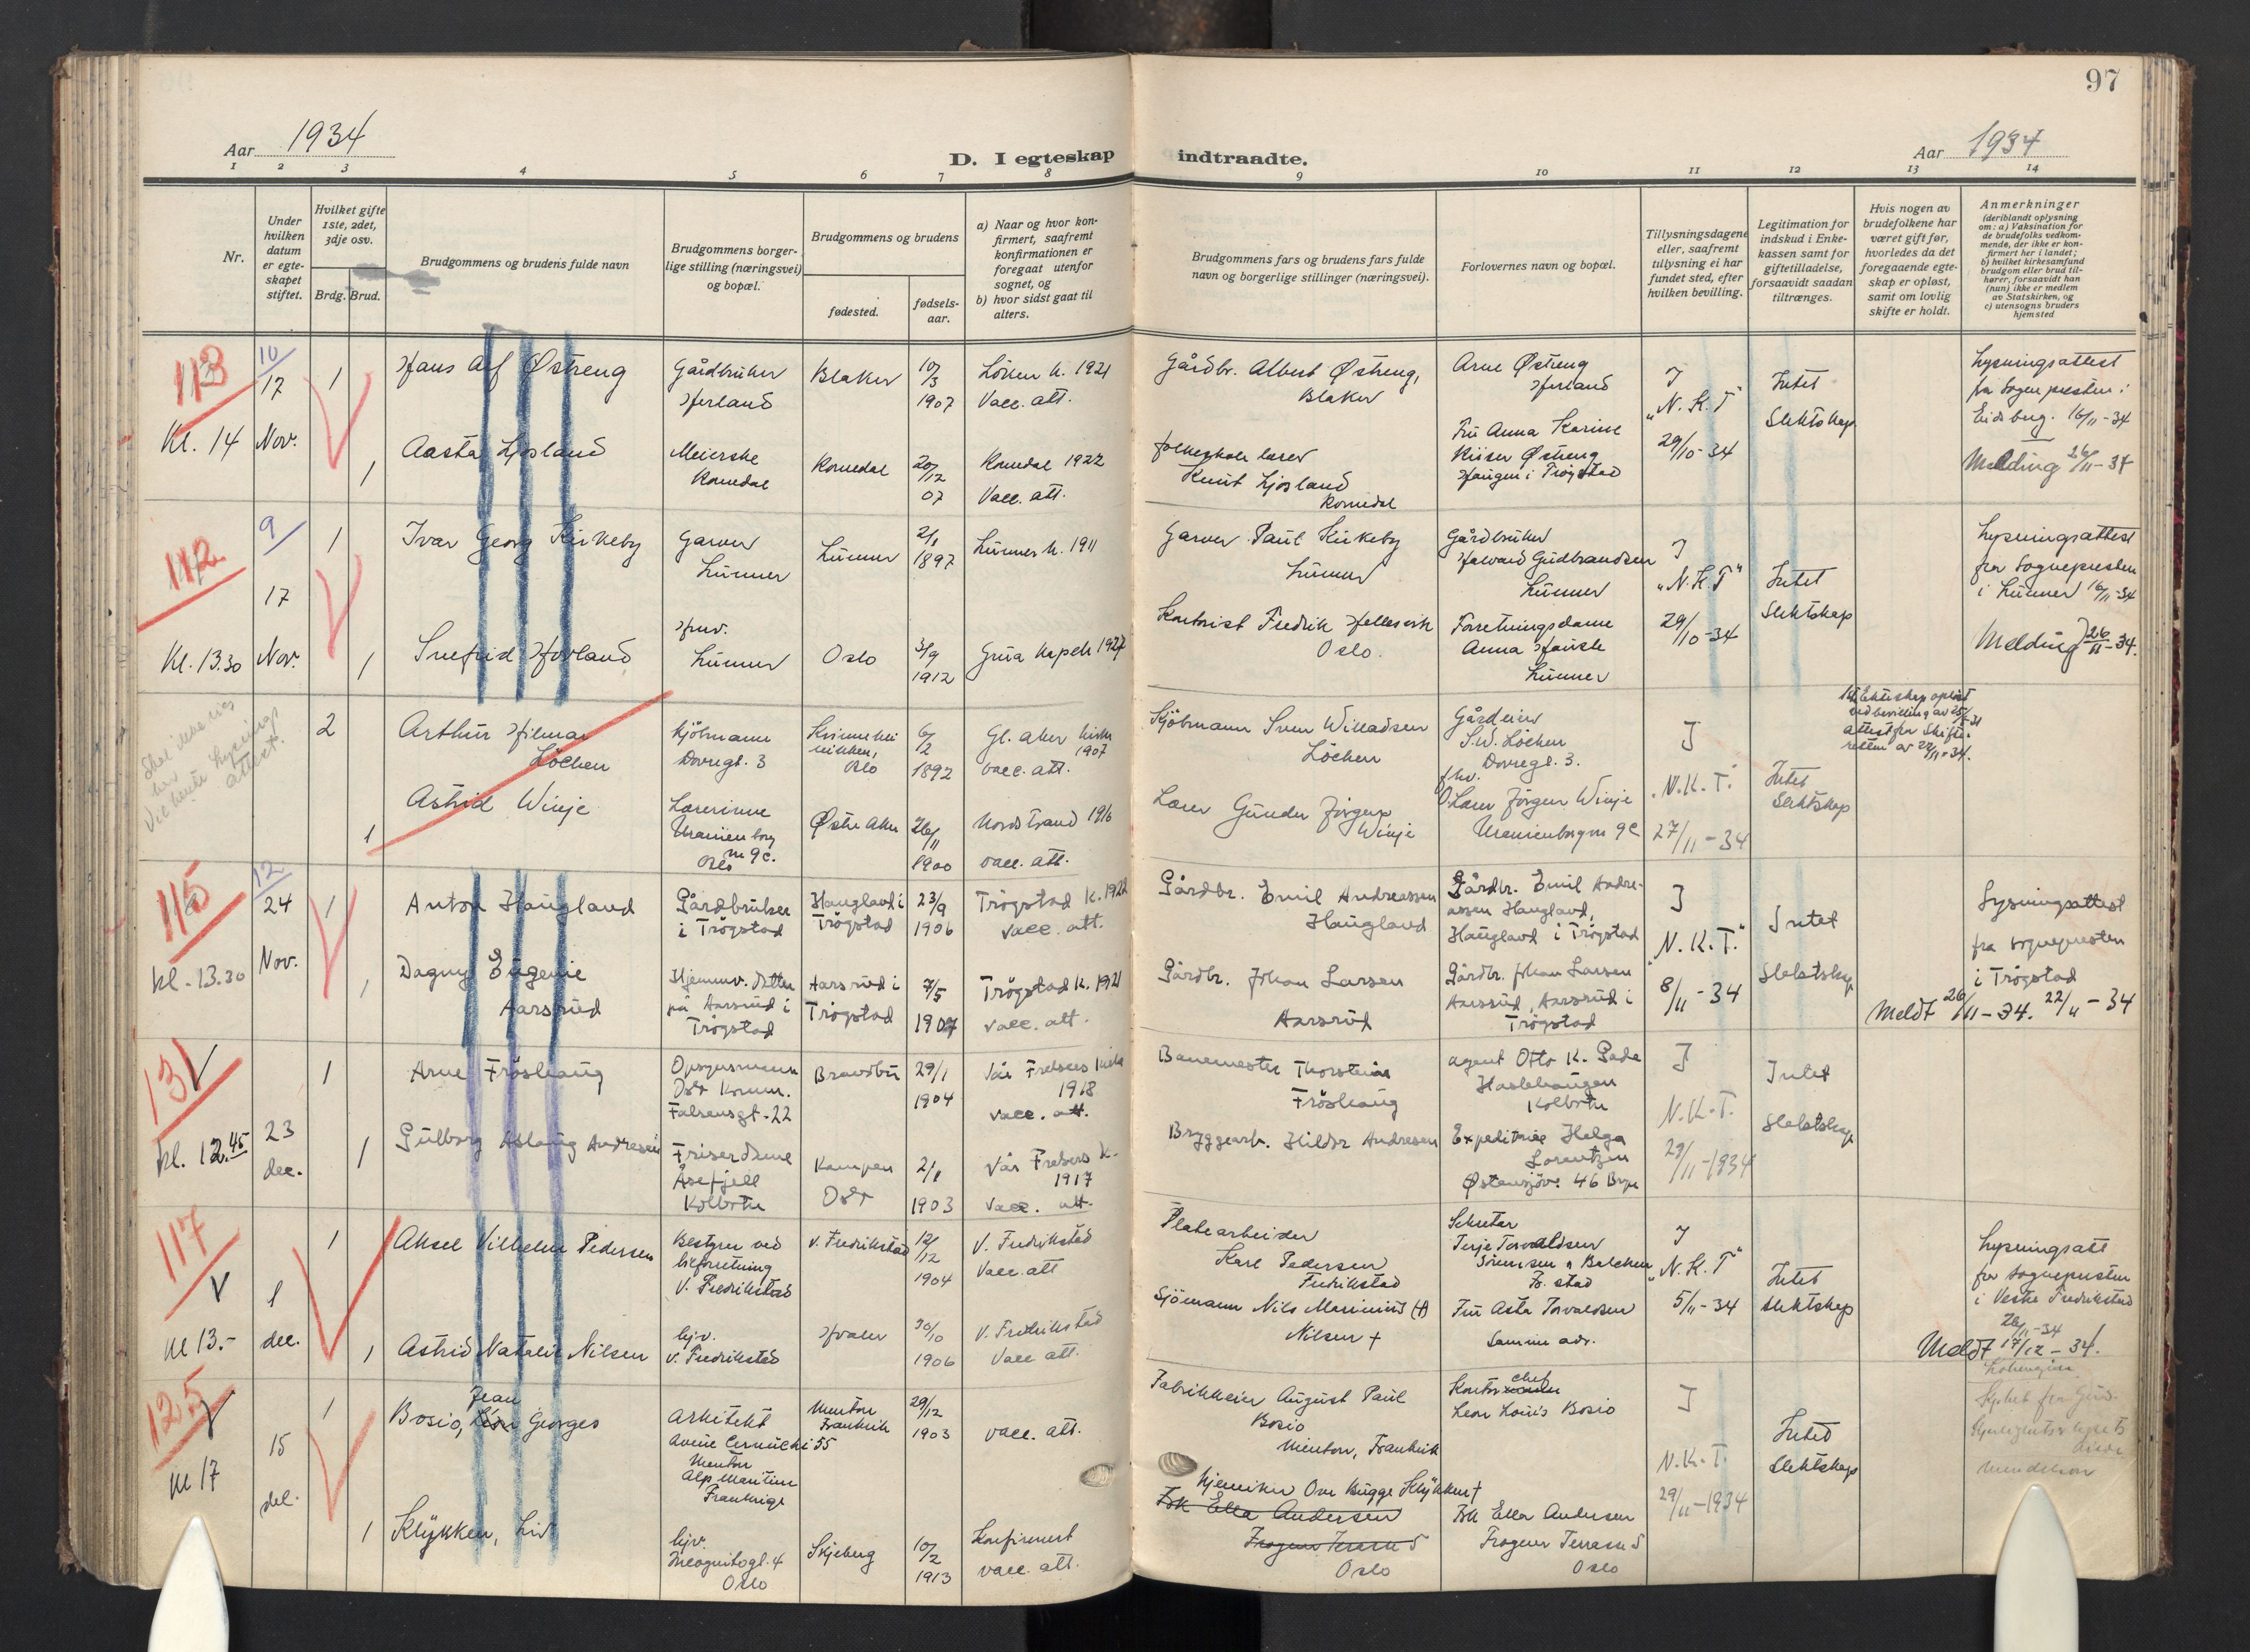 97
Aar 1934
D. I egteskap indtraadte.
Aar 1934
1 2 3 4 5 6 7 8 9 10 11 12 13 14
Nr.
Under
hvilken
datum
er egte-
skapet
stiftet.
Hvilket gifte
1ste, 2det,
3dje osv.
Brdg. Brud.
Brudgommens og brudens fulde navn
Brudgommens borger-
lige stilling (næringsvei)
og bopæl.
Brudgommens og brudens
fødested.
fødsels-
aar.
a) Naar og hvor kon-
firmert, saafremt
konfirmationen er
foregaat utenfor
sognet, og
b) hvor sidst gaat til
alters.
Brudgommens fars og brudens fars fulde
navn og borgerlige stillinger (næringsvei).
Forlovernes navn og bopæl.
Tillysningsdagene
eller, saafremt
tillysning ei har
fundet sted, efter
hvilken bevilling.
Legitimation for
indskud i Enke-
kassen samt for
giftetilladelse,
forsaavidt saadan
tiltrænges.
Hvis nogen av
brudefolkene har
været gift før,
hvorledes da det
foregaaende egte-
skap er opløst,
samt om lovlig
skifte er holdt.
Anmerkninger
(deriblandt oplysning
om: a) Vaksination for
de brudefolks vedkom-
mende, der ikke er kon-
firmert her i landet;
b) hvilket kirkesamfund
brudgom eller brud til-
hører, forsaavidt han
(hun) ikke er medlem
av Statskirken, og
c) utensogns bruders
hjemsted
113
Kl. 14
10
17
Nov.
1
Hans Alf Østreng
Gårdbruker
Herland
Blaker
10/3
1907
Löken k. 1921
Vacc. att.
Gårdbr. Albert Østreng,
Blaker
Arne Østreng
Herland
J
"N.K.T"
29/10-34
Intet
Slektskap
Lysningsattest
fra Sognepresten i
Eidsberg. 16/11-34
Melding 26/11-34
1
Aasta Ljosland
Meierske
Romedal
Romedal
20/12
07
Romedal 1922
Vacc. att.
folkeskolelærer
Knut Ljosland
Romedal
Fru Anna Karine
Østreng
Haugen i Trøgstad
112
Kl. 13.30
9
17
Nov.
1
Ivar Georg Kirkeby
Garver
Lunner
Lunner
2/1
1897
Lunner k. 1911
Garver Paul Kirkeby
Lunner
Gårdbruker
Halvard Gudbrandsen
Lunner
J
"N.K.T"
29/10-34
Intet
Slektskap
Lysningsattest
fra Sognepresten
i Lunner 16/11-34
Melding 26/11-34.
1
Snefrid Hovland
Husv.
Lunner
Oslo
3/9
1912
Grua kapell 1927
Kontorist Fredrik
Oslo.
Forretningsdame
Anna
Lunner
Skal ikke vies
her
Vil hente Lysnings
attest.
2
Arthur Hilmar
Löchen
Kjöbmann
Dovregt. 3
Oslo
6/2
1892
Gl. Aker kirke
1907
vacc. att.
Kjöbmann Sven Willadsen
Löchen
Gårdeier
S.W. Löchen
Dovregt. 3.
J
"N.K.T."
27/11-34
Intet
Slektskap
ekteskap opløst
ved bevilling av
attest fra Skifte-
retten av 22/11-34.
1
Astrid Winje
Lærerinne
Uranienborg
v. 9c.
Oslo
Østre Aker
26/11
1900
Nordstrand 1916
vacc. att.
Lærer Gunder Jörgen
Winje
fhv.
O. Lærer Jörgen Winje
Uranienborgv. 9c
115
kl. 13.30
12
24
Nov.
1
Anton Haugland
Gårdbruker
i Trögstad
Haugland i
Trögstad
23/9
1906
Trögstad k. 1922
vacc. att.
Gårdbr. Emil Andreassen
Haugland
Gårdbr. Emil Andre-
assen Haugland,
Haugland i Trögstad
J
"N.K.T."
8/11-34
Intet
Slektskap
Lysningsattest
fra sognepresten
i Trögstad
22/11-34
Meldt 26/11-34.
1
Dagny Eugenie
Aarsrud
Hjemmev. datter
på Aarsrud i
Trögstad
Aarsrud i
Trögstad
7/5
1907
Trögstad k. 1921
vacc. att.
Gårdbr. Johan Larsen
Aarsrud
Gårdbr. Johan Larsen
Aarsrud, Aarsrud i
Trögstad
131
kl. 12.45
23
dec.
1
Arne Fröshaug
Opsynsmann
Oslo Komm.
Falsensgt. 22
Brandbu
29/1
1904
Vår Frelsers kirke
1918
vacc. att.
Banemester Thorstein
Fröshaug
agent Otto K. Gade
Haslehaugen
Kolbotn
J
N.K.T.
29/11-1934
Intet
Slektskap
1
Gulborg Aslaug Andresen
Friserdame
Åsefjell
Kolbotn
Kampen
Oslo
2/1
1903
Vår Frelsers k.
1917
vacc. att.
Bryggearb. Hildor Andresen
Expeditrice Helga
Lorentzen
Østensjöv. 46 Bryn
117
kl 13.-
1
dec.
1
Aksel Vilhelm Pedersen
Bestyrer ved
V. Fredrikstad
V. Fredrikstad
12/12
1904
V. Fredrikstad
Vacc. att
Platearbeider
Karl Pedersen
Fredrikstad
Sekretær
Terje Torvaldsen
Sörensen & Balchen
Fr. stad
J
"N.K.T"
5/11-34
Intet
slektskap
Lysningsatt
fra sognepresten
i Vestre Fredrikstad
26/11-34
Meldt 17/12-34.
1
Astrid Natalie Nilsen
hjv.
V. Fredrikstad
Hvaler
30/10
1906
V. Fredrikstad
Vacc att.
Sjömann Nils Marinius (†)
Nilsen †
Fru Asta Torvaldsen
Samme adr.
125
kl 17
15
del.
1
Jean
Bosio, Léon Georges
Arkitekt
Avenue Cernuschi 55
Menton
Alp. Maritime
Frankrige
Menton
Frankrik
29/12
1903
vacc. att.
Fabrikkeier August Paul
Bosio
Menton, Frankrik
Kontorchef
Leon Louis Bosio
J
N.K.T.
29/11-1934
Intet
slektskap
Lohengrin
1
Klykken, Liv
hjv.
Incognitogt. 4
Oslo
Skjeberg
10/2
1913
Konfirmert
vacc. att.
Kjemiker Ove Bugge Klykken †
Frk Ella Andersen
Frogner Terrasse 5
Oslo
Frk Ella Andersen
Frogner Terrasse 5
Oslo